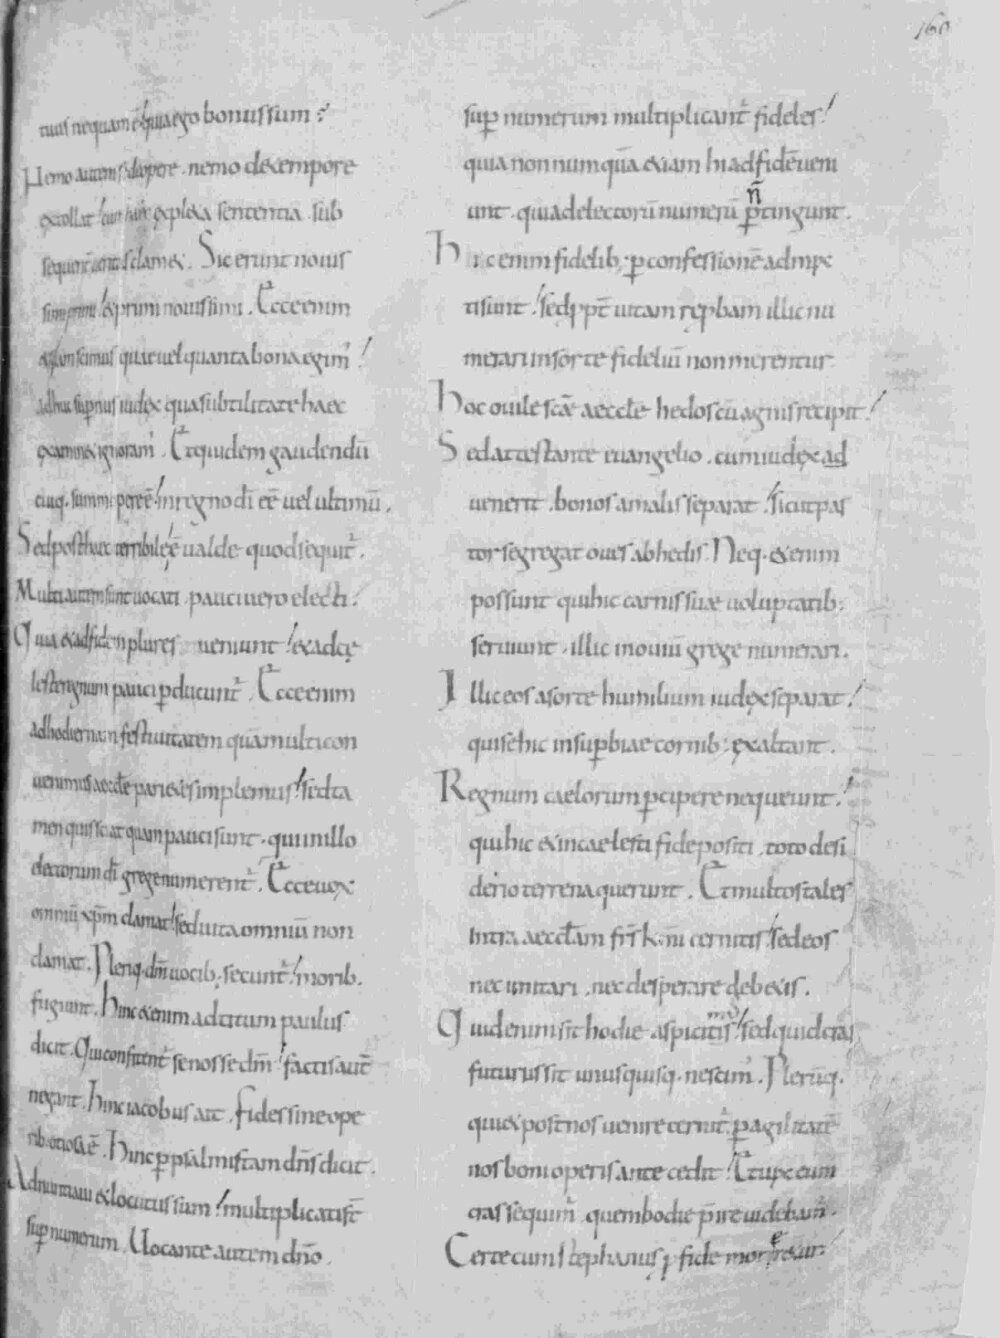 160
tuus nequam ē quia ego bonus sum ;
Nemo autem se de opere . nemo de tempore
extollat cum hac expleta sententia sub
sequent̄ ueritas clamet . Sic erunt nouis
simi primi et primi nouissimi . Ecce enim
etsi iam scimus quae uel quanta bona egim᾽
adhuc sup̄nus iudex qua subtilitate haec
examinet ignoram᾽ . Et quidem gaudendū
cuiq · summopere ē in regno dī eē uel ultimū .
Sed post haec terribile ē ualde quod sequit᾽ .
Multi autem sunt uocati . pauci uero electi .
Quia et ad fidem plures ueniunt et ad cę
leste regnum pauci p̱ducunt᾽ . Ecce enim
ad hodiernam festiuitatem quā multi con
uenimus aeccłe parietes implemus sed ta
men quis sciat quam pauci sunt . qui in illo
electorum dī grege numerent᾽ . Ecce uox
omniū xp̄m clamat sed uita omniū non
clamat . Pleriq · dm̄ uocib · secunt᾽ morib ·
fugiunt . Hinc etenim ad titum paulus
dicit . Qui confitent᾽ se nosse dm̄ factis aut̄
negant . Hinc iacobus ait . fides sine ope
rib · otiosa ē . Hinc p̱ psalmistam dn̄s dicit .
Adnuntiaui et locutus sum multiplicati st̄
sup̄ numerum . Uocante autem dn̄o .
sup̄ numerum multiplicant᾽ fideles
quia non numquā etiam hi ad fidē ueni
unt . quia delectorū numerū p̱tingunt .
n̄
Hic enim fidelib ; p̱ confessionē admix
ti sunt sed ppt̄ uitam repbam illic nu
merari in sorte fideliū non merentur
Hoc ouile scǣ aeccłe hedos cū agnis recipit
Sed attestante euangelio . cum iudex ad
uenerit . bonos a malis separat sicut pas
tor segregat oues ab hedis . Neq · etenim
possunt qui hic carnis suæ uoluptatib ;
seruiunt . illic in ouiū grege numerari .
Illic eos a sorte humilium iudex separat
qui se hic in sup̄biae cornib ; exaltant .
Regnum caelorum p̱cipere nequeunt
qui hic et in caelesti fide positi . toto desi
derio terrena querunt . Et multos tales
Intra aeccłam fr̄s k̄mi cernitis sed eos
nec imitari . nec desperare debetis .
Quid enim sit hodie aspicitis sed quid cras
futurus sit unusquisq · nescim᾽ . Plerūq ·
qui et post nos uenire cernit᾽ p̱ agilitatē
nos boni operis antecedit Et uix eum
cras sequim᾽ . quem hodie p̄ire uidebam᾽ .
Certe cum stephanus p fide morer&ur